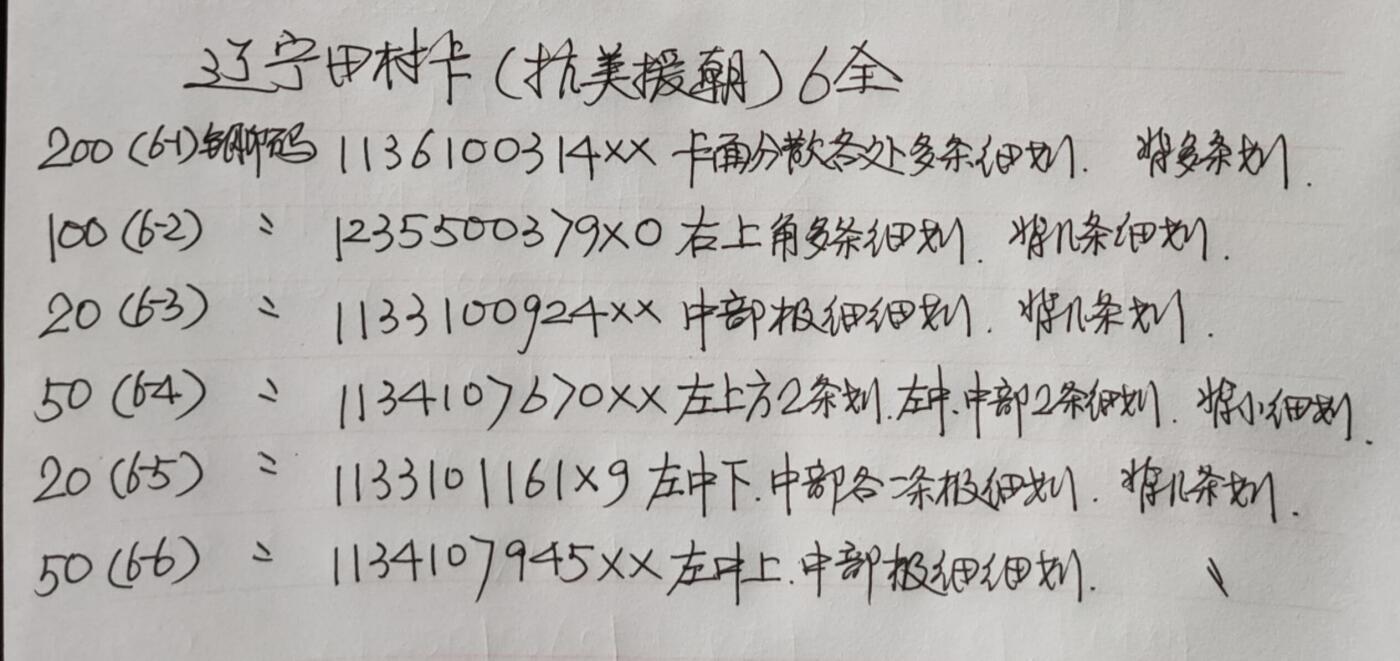 辽宁田村卡(抗美援朝)6全
200(6-1)钢印码 1136100314×× 卡面分散各处多条细划. 背多条划.
100(6-2) 〃 12355500379×0 右上角多条细划. 背几条细划.
20(6-3) 〃 1133100924×× 中部极细细划. 背几条划.
50(6-4) 〃 1134107670×× 左上方2条划.左中.中部2条细划. 背小细划.
20(6-5) 〃 1133101161×9 左中下.中部各一条极细划. 背几条划.
50(6-6) 〃 1134107945×× 左中上.中部极细细划. \